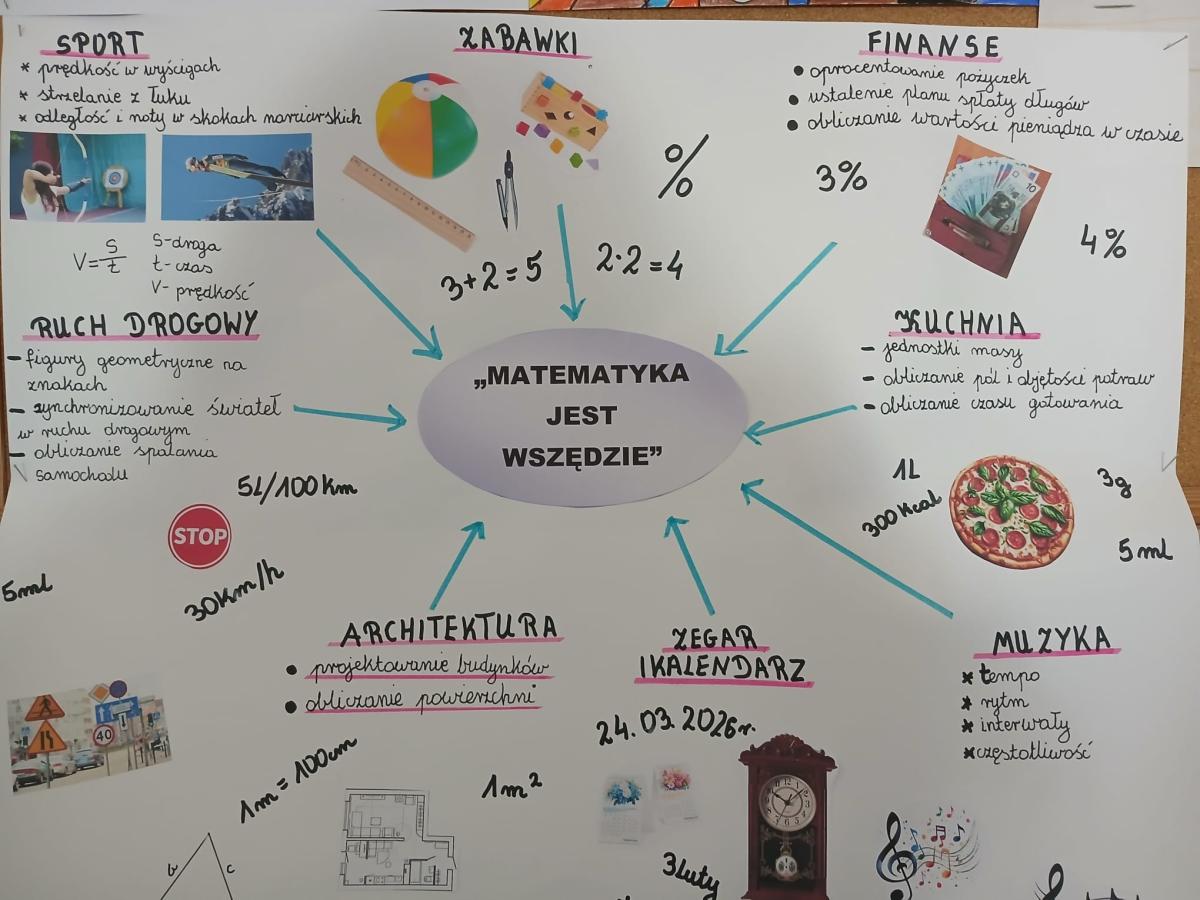 SPORT
* prędkość w wyścigach
* strzelanie z łuku
* odległość i noty w skokach narciarskich
V=S/t
S-droga
t-czas
V-prędkość
ZABAWKI
3+2=5
2·2=4
%
FINANSE
• oprocentowanie pożyczek
• ustalenie planu spłaty długów
• obliczanie wartości pieniądza w czasie
3%
4%
RUCH DROGOWY
- figury geometryczne na
znakach
- synchronizowanie świateł
w ruchu drogowym
- obliczanie spalania
samochodu
5L/100km
STOP
30km/h
5ml
40
„MATEMATYKA
JEST
WSZĘDZIE”
KUCHNIA
- jednostki masy
- obliczanie pól i objętości potraw
- obliczanie czasu gotowania
1L
300kcal
3g
5ml
ARCHITEKTURA
• projektowanie budynków
• obliczanie powierzchni
1m=100cm
1m²
b
c
ZEGAR
I KALENDARZ
24.03.2026r.
3luty
MUZYKA
* tempo
* rytm
* interwały
* częstotliwość